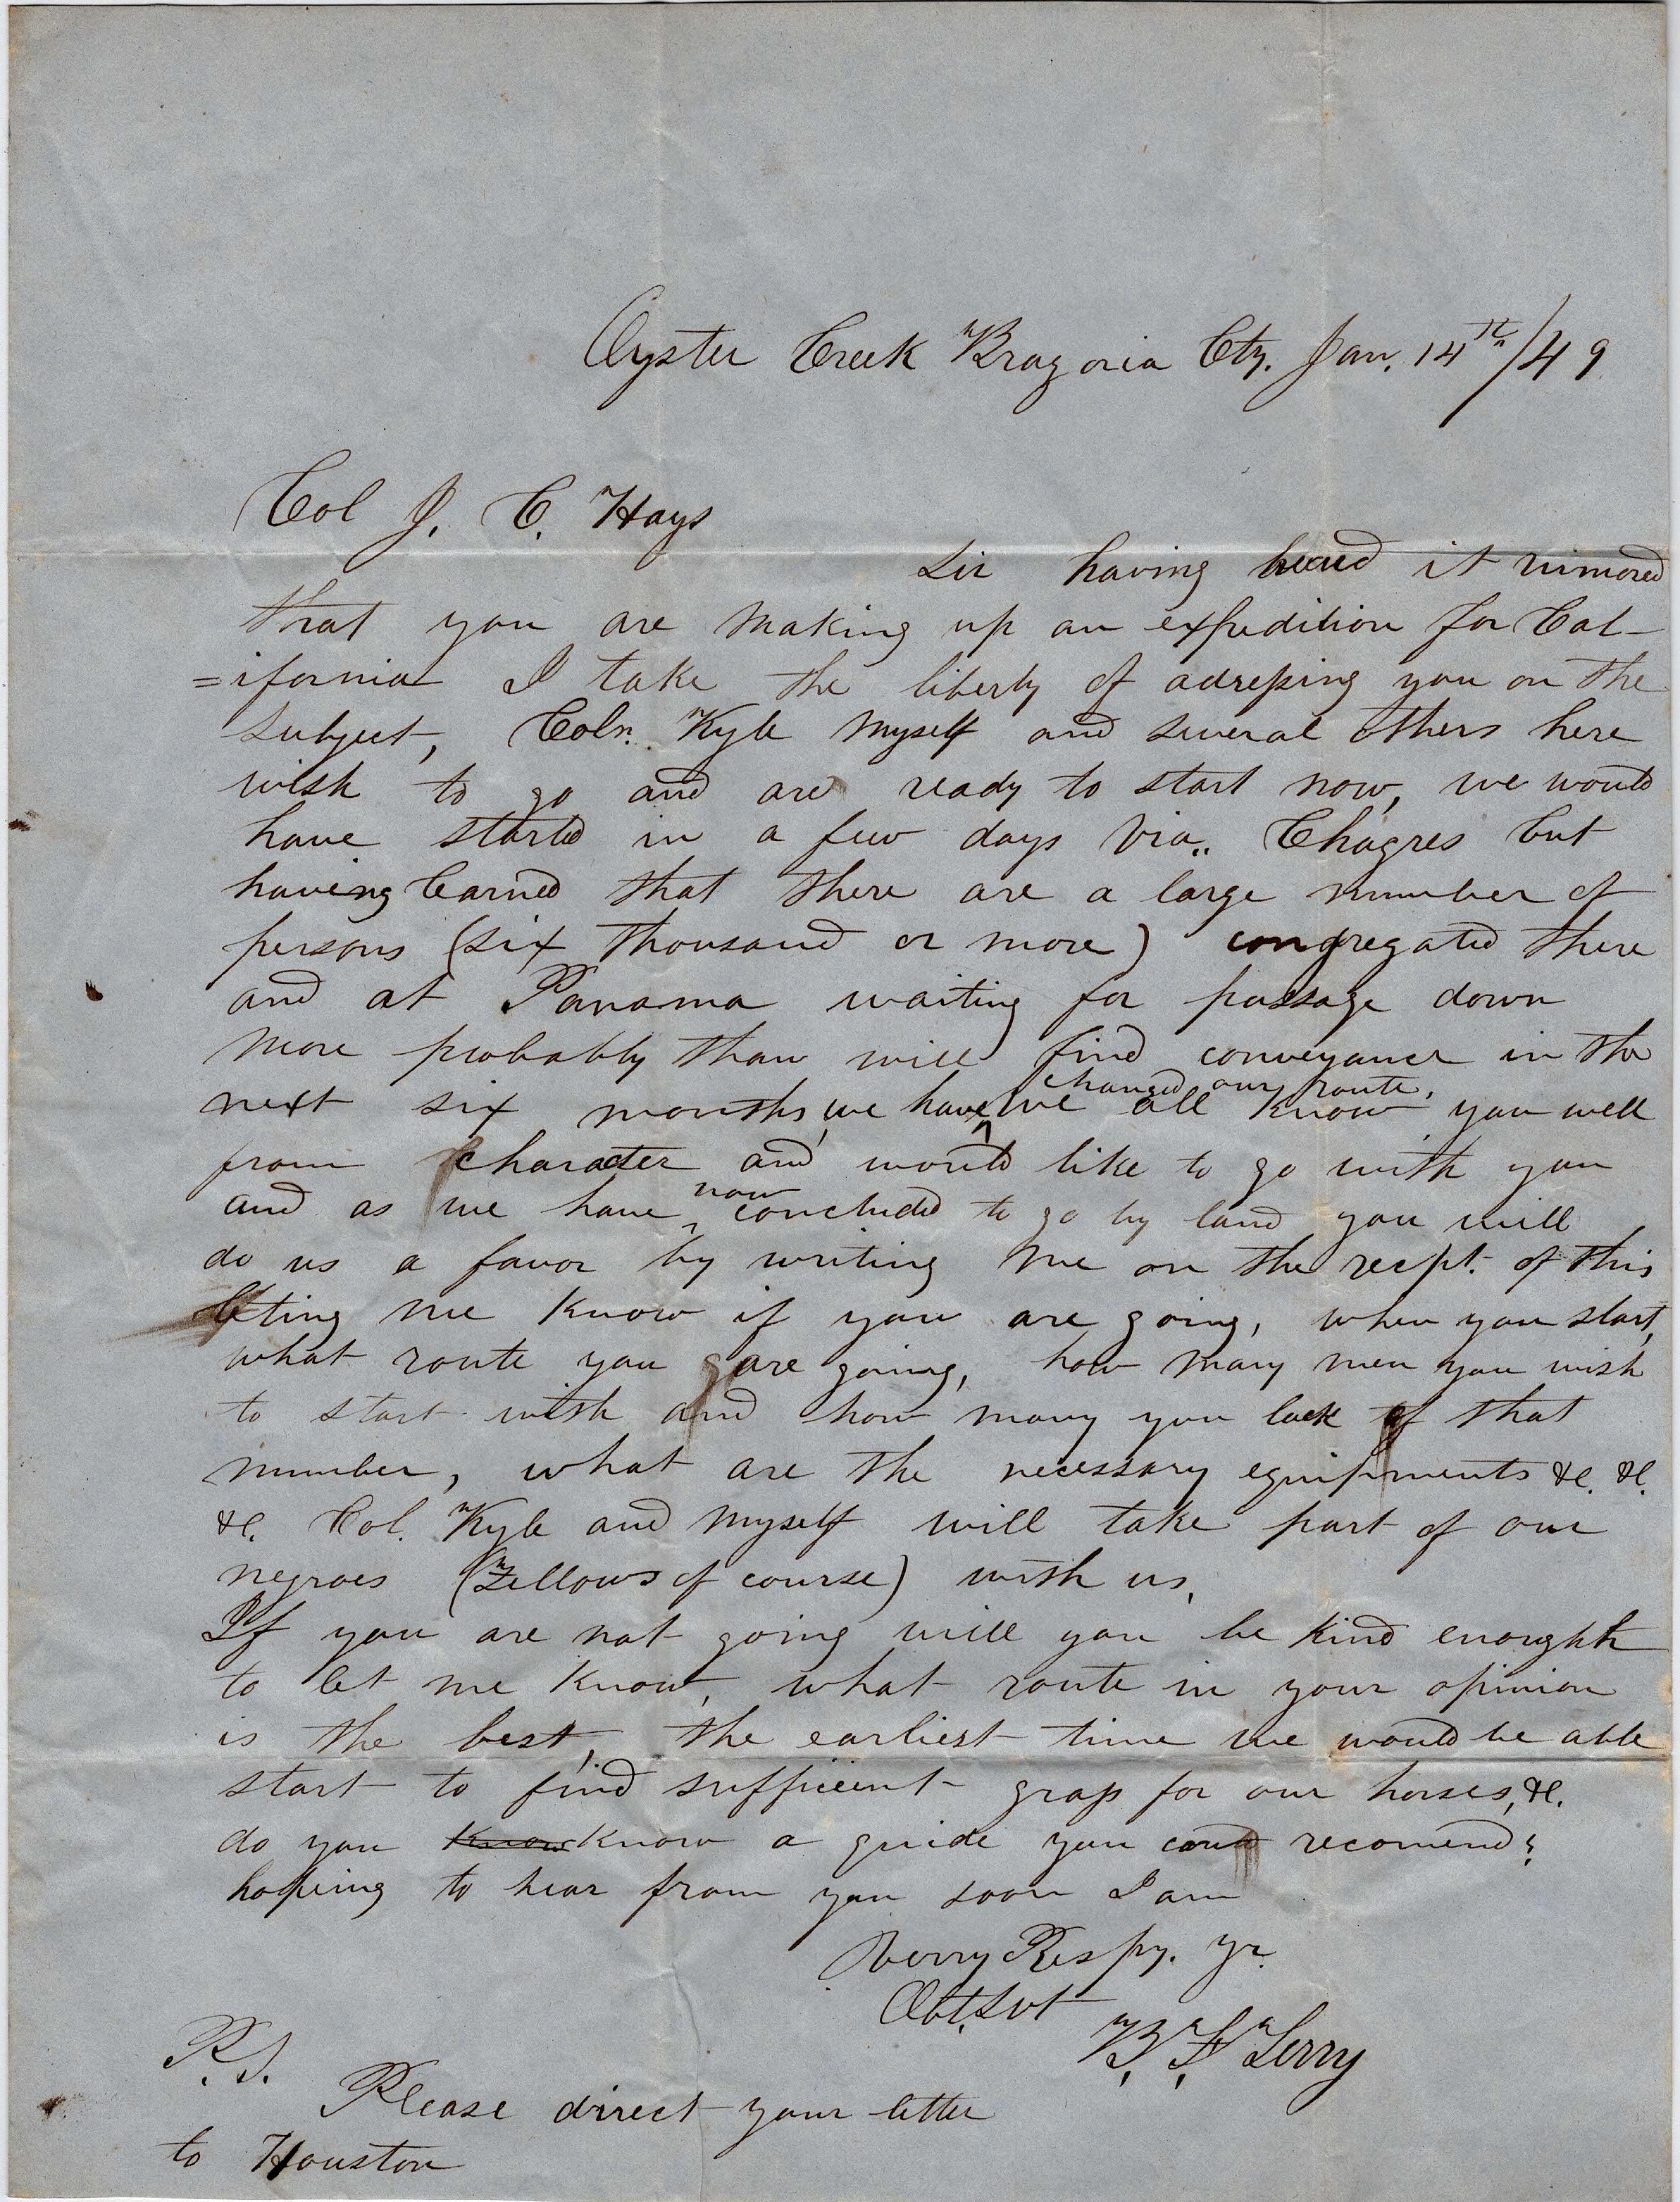 Oyster Creek Brazoria Cty. Jan. 14th/49
Col J. C. Hays
Sir having heard it rumored
that you are making up an expedition for Cal-
=ifornia I take the liberty of adressing you on the
subject, Coln. Kyle myself and several others here
wish to go and are ready to start now, we would
have started in a few days via.. Chagres but
having learned that there are a large number of
persons (six thousand or more) congregated there
and at Panama waiting for passage down
more probably than will find conveyance in the
changed our route.
next six months, we have ^ we all know you well
from character and would like to go with you
now
and as we have ^ concluded to go by land you will
do us a favor by writing me on the recpt. of this
leting me know if you are going, when you start,
what route you are going, how many men you wish
to start with and how many you lack of that
number, what are the necessary equipments &c. &c.
&c. Col. Kyle and myself will take part of our
negroes (fellows of course) with us.
If you are not going will you be kind enought
to let me know, what route in your opinion
is the best, the earliest time we would be able
start to find sufficient grass for our horses, &c.
do you know know a guide you could recomend?
hopeing to hear from you soon I am
Verry Respy. yr.
Obt. Svt
B. F. Terry
P.S.
Please direct your letter
to Houston